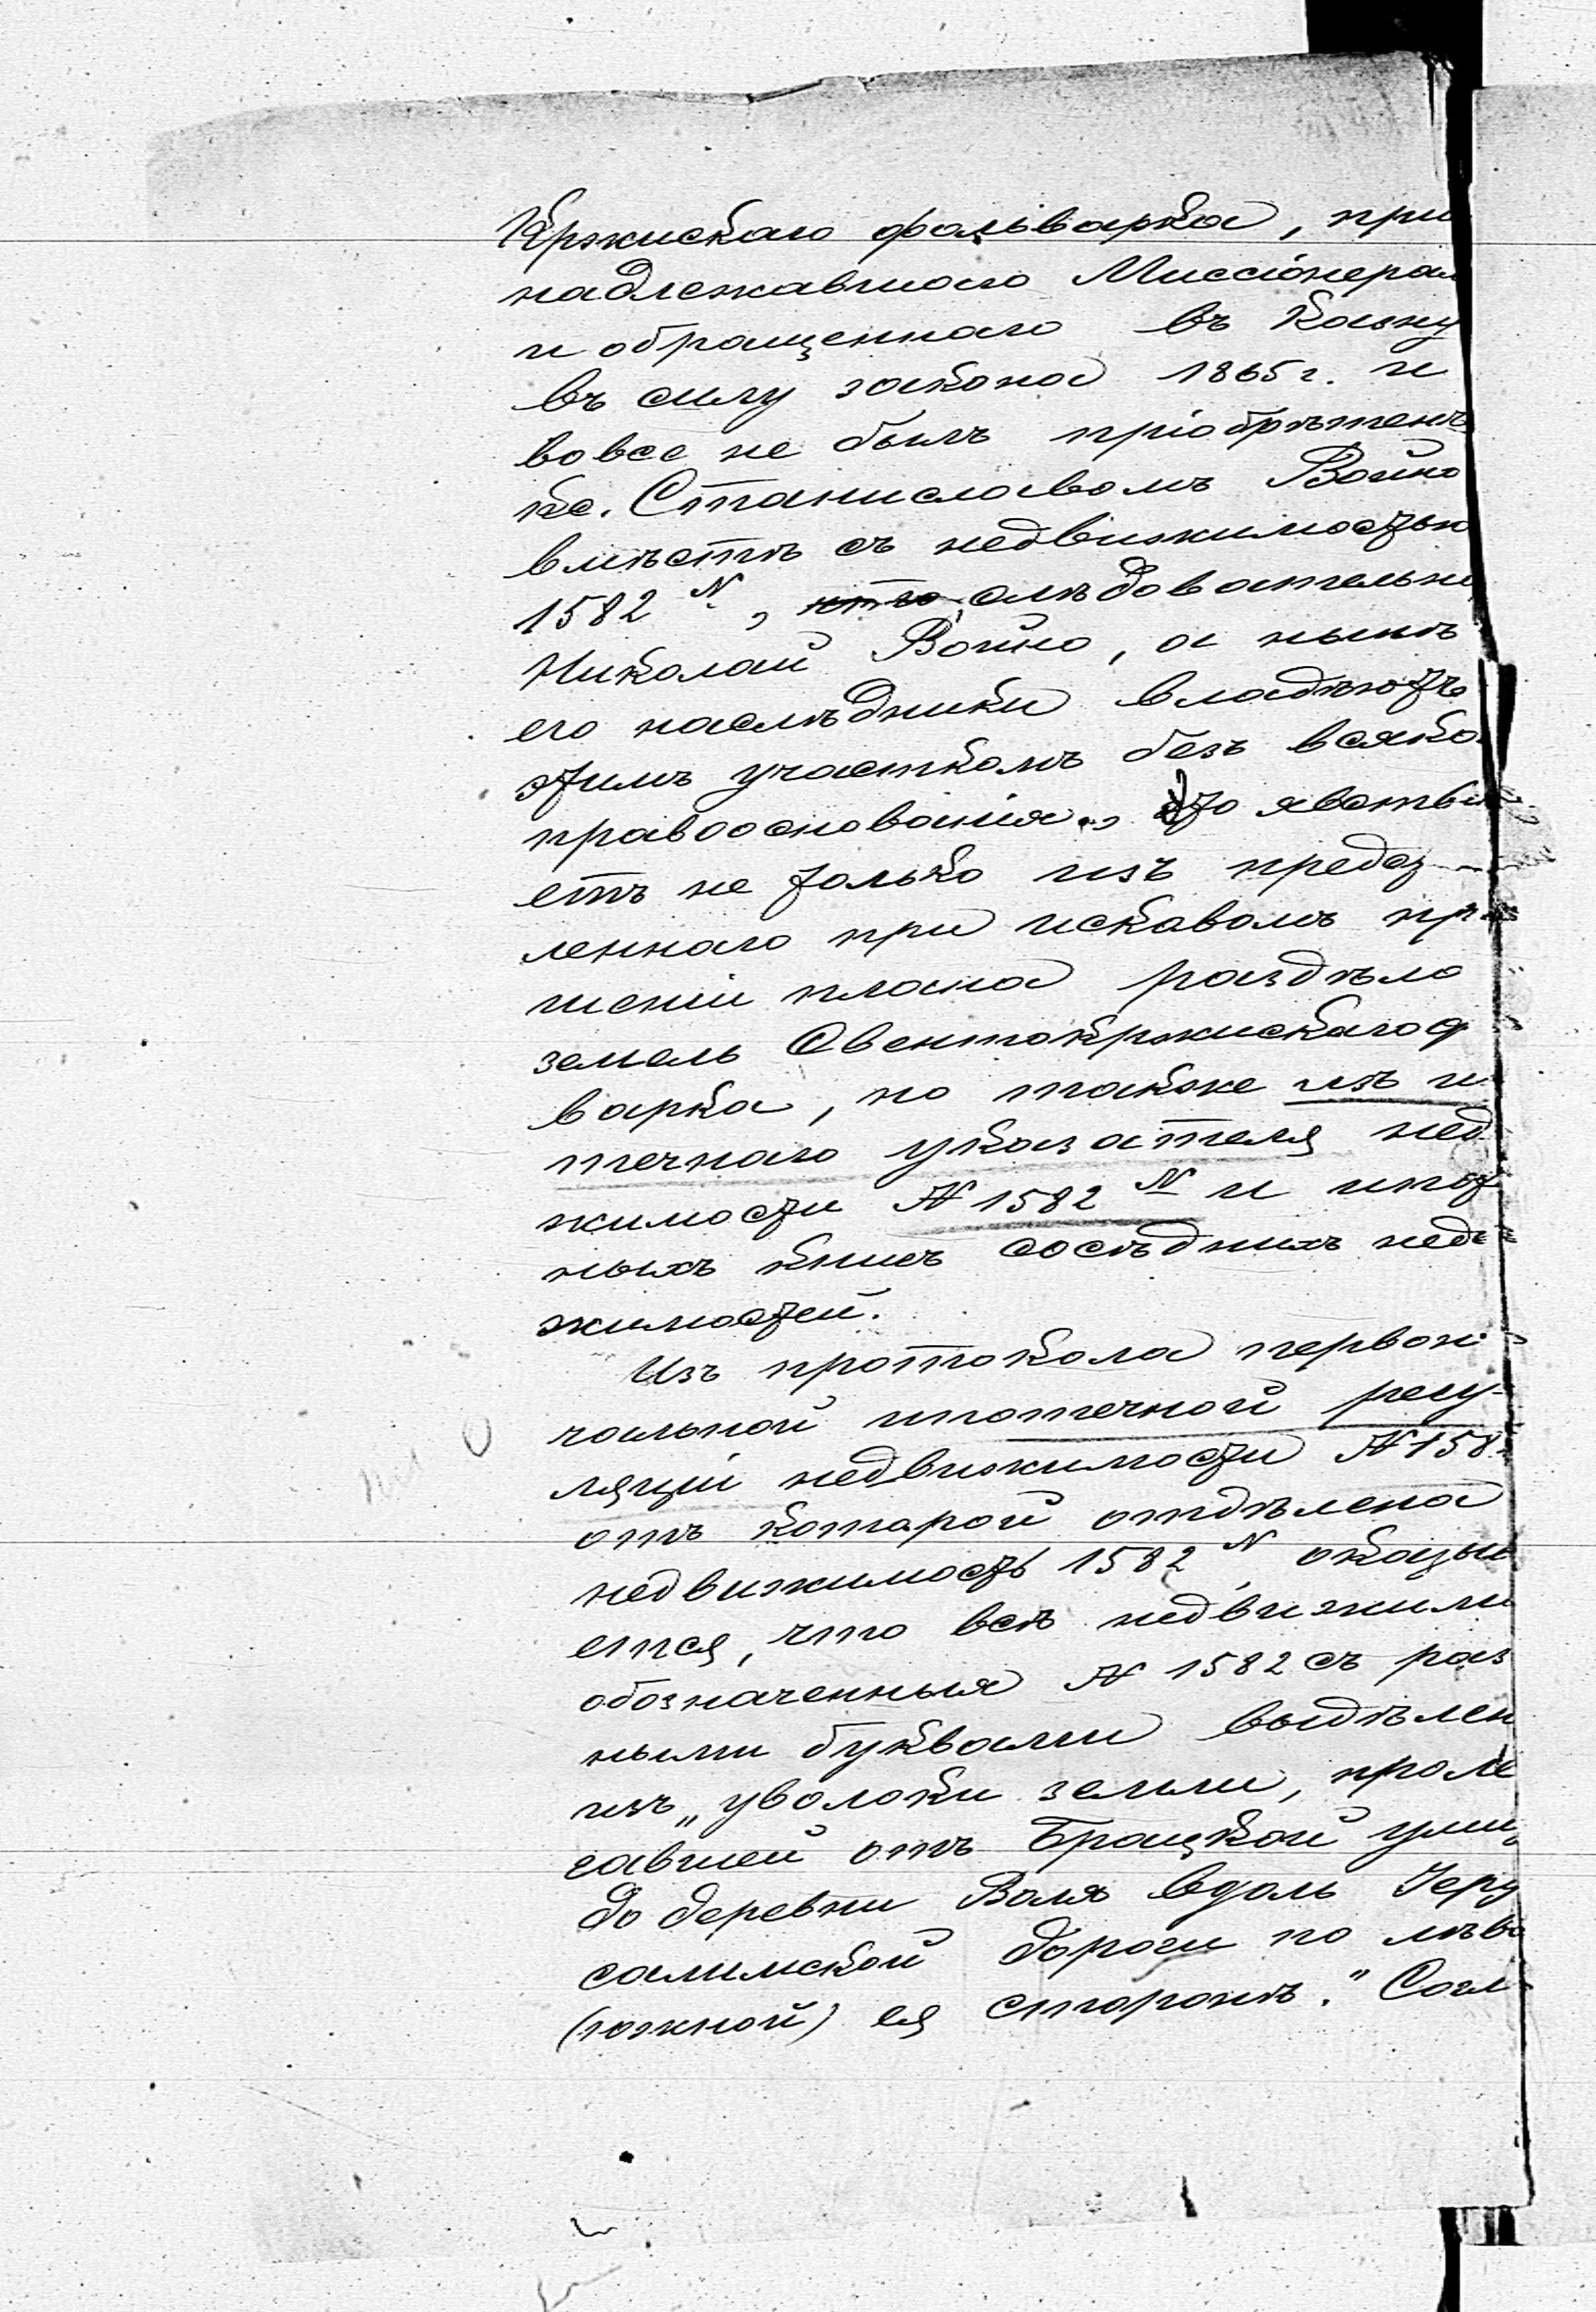 Кржискаго фольварка, при
надлежавшаго Миссіонерам
и обращеннаго въ казну
въ силу закона 1865 г. и
вовсе не былъ пріобрѣтенъ
кс. Станиславомъ Войно
вмѣстѣ съ недвижимостью
1582 N, что слѣдовательно
Николай Войно, а нынѣ
его наслѣдники владѣютъ
этимъ участкомъ безъ всяко
правооснованія., Это явству
етъ не только изъ предст
леннаго при исковомъ пр
шеніи плана раздѣла
земель Свентокржискаго ф
варка, но также изъ и
течнаго указателя нед
жимости № 1582 N и ипот
ныхъ книгъ сосѣднихъ недв
жимостей.
Изъ протокола первон
чальной ипотечной регу-
ляціи недвижимости № 158
отъ которой отдѣлена
недвижимость 1582 N, оказыв
ется, что всѣ недвижим
обозначенныя № 1582 съ раз
ными буквами выдѣлен
изъ „уволоки земли, проле
гавшей отъ Брацкой ули
до деревни Воля вдоль Іеру
салимской дороги по лѣво
(южной) ея сторонѣ." Согл